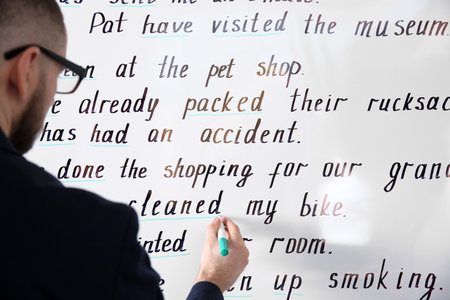 sent me an
Pat have visited the museum
at the pet shop.
already packed their rucksac
has had an accident.
done the shopping for our gran
cleaned my bike.
room.
up smoking.